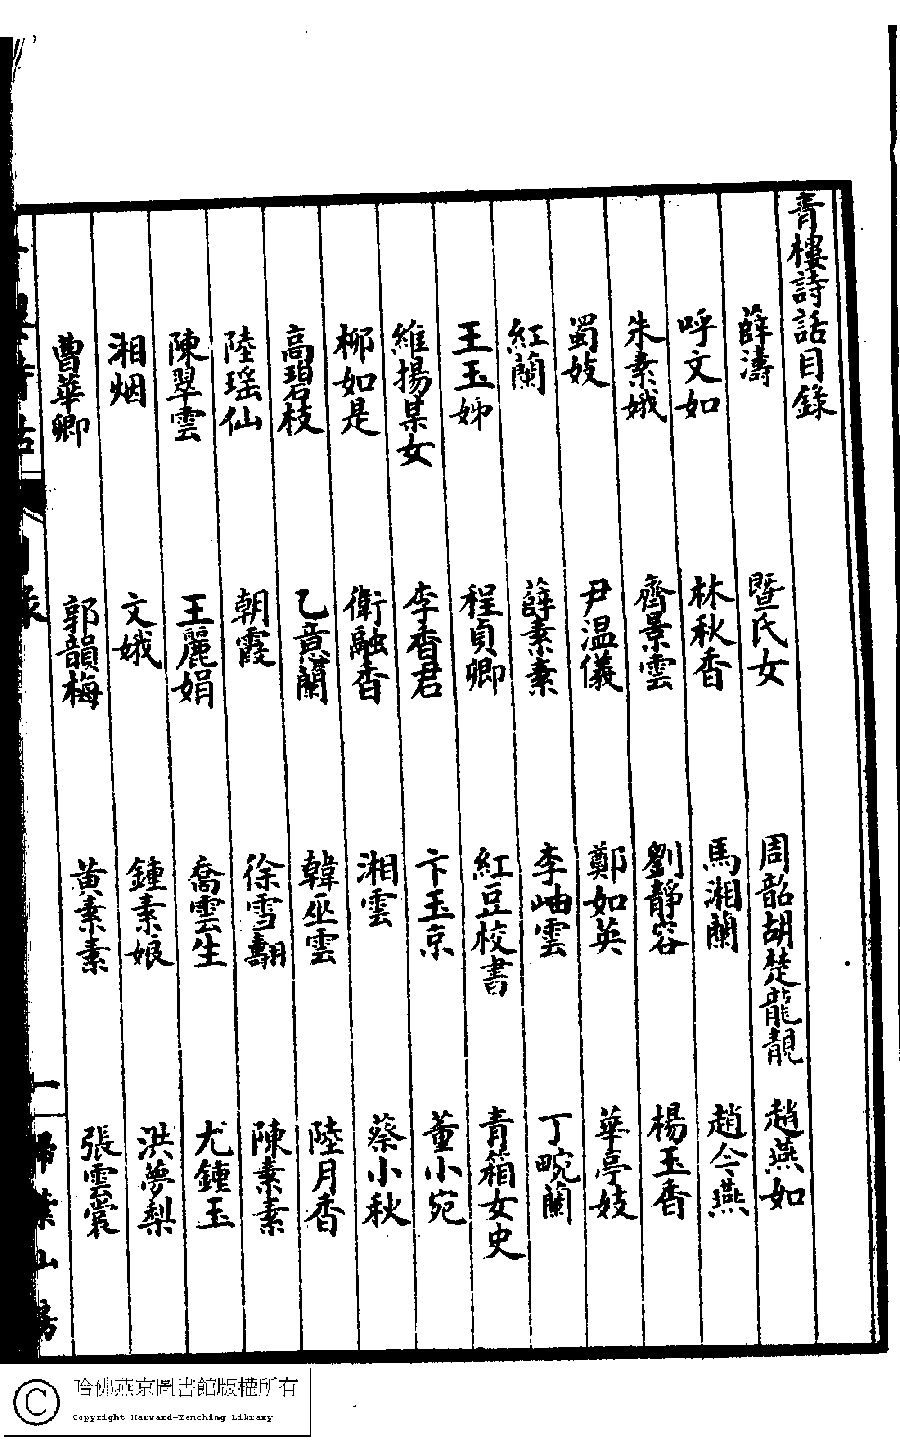 青樓詩話目錄
薛濤 暨氏女 周韶胡楚龍靚 趙燕如
呼文如 林秋香 馬湘蘭 趙今燕
朱素娥 齊景雲 劉靜容 楊玉香
蜀妓 尹温儀 鄭如英 華亭妓
紅蘭 薛素素 李岫雲 丁畹蘭
王玉姊 程貞卿 紅豆校書 青箱女史
維揚某女 李香君 卞玉京 董小宛
柳如是 衛融香 湘雲 蔡小秋
高碧枝 乙意蘭 韓巫雲 陸月香
陸瑶仙 朝霞 徐雪翿 陳素素
陳翠雲 王麗娟 喬雲生 尤鍾玉
湘烟 文娥 鍾素娘 洪夢梨
曹華卿 郭韻梅 黃素素 張雲裳
目錄
一
掃葉山房
哈佛燕京圖書館版權所有
Copyright Harvard-Yenching Library